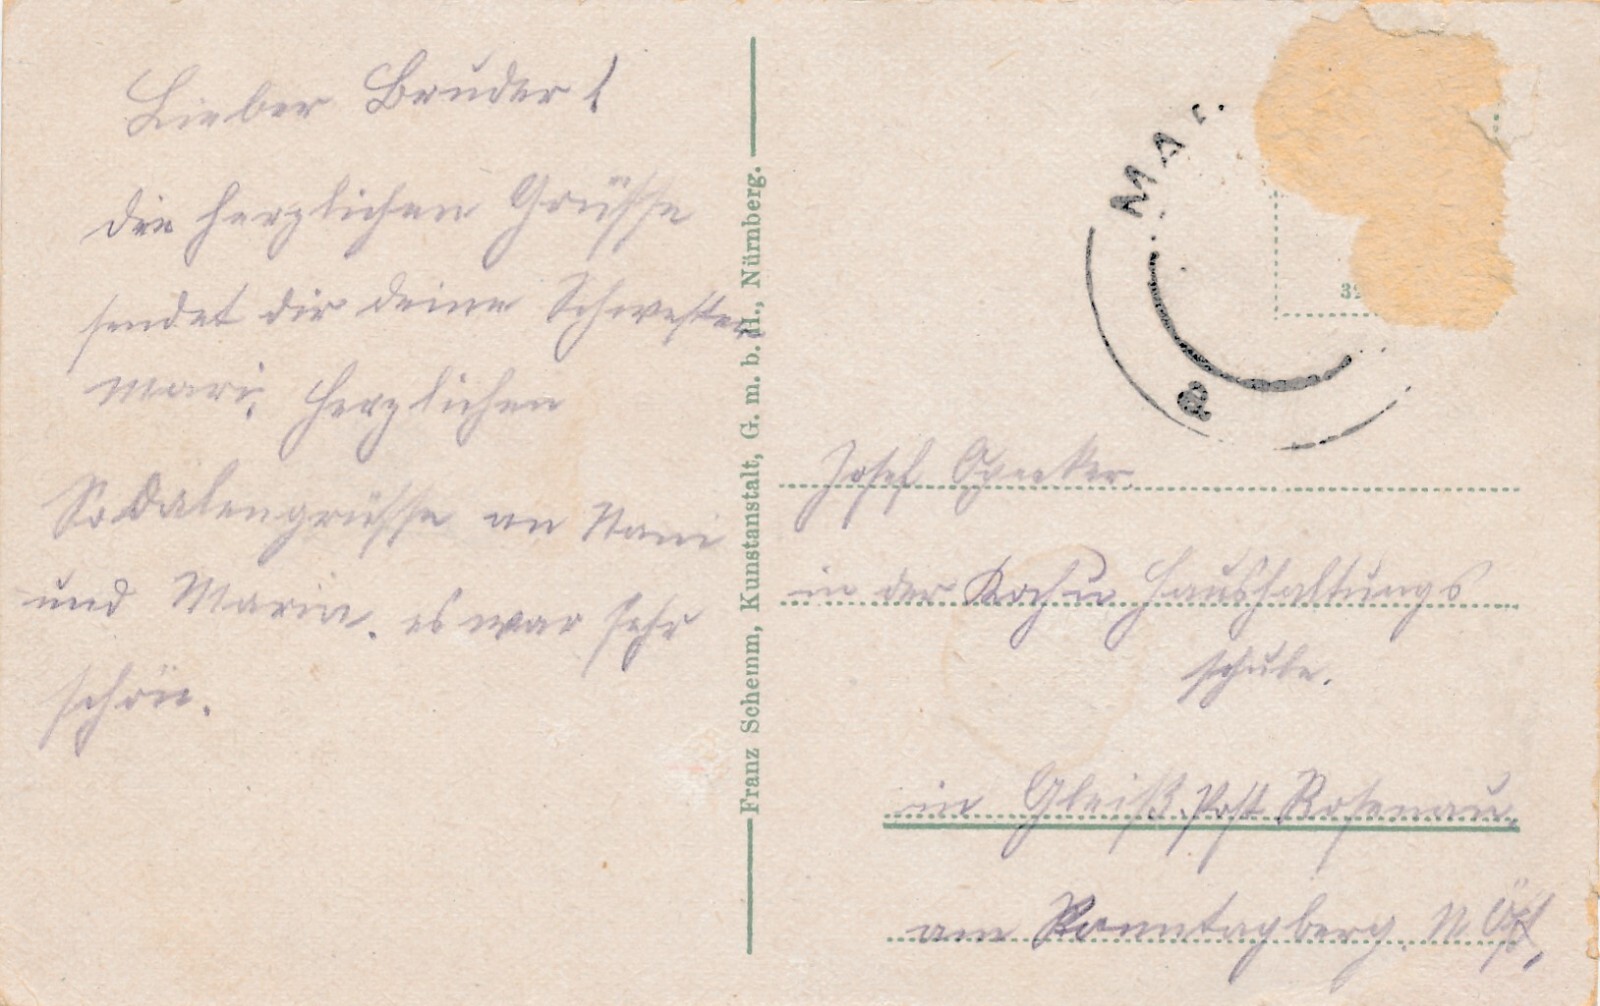 Lieber Bruder!
die herzlichen Grüsse
sendet dir deine Schwester
Mari. herzlichen
Sodalengrüsse an Nani
und Maria. es war sehr
schön.
Franz Schemm, Kunstanstalt, G. m. b. H., Nürnberg.
MA
a
Josef
in der Koch u Haushaltungs
schule.
in Gleiß. Post Rosenau.
am Sonntagberg. N Öst,